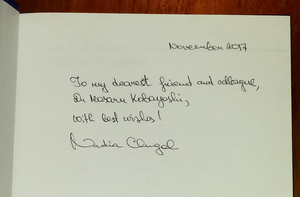 November 2017
To my dearest friend and colleague,
Dr Masaru Kobayashi,
with best wishes!
Nadia